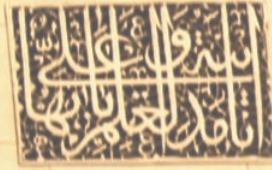 انا مدينة العلم وعلي بابها